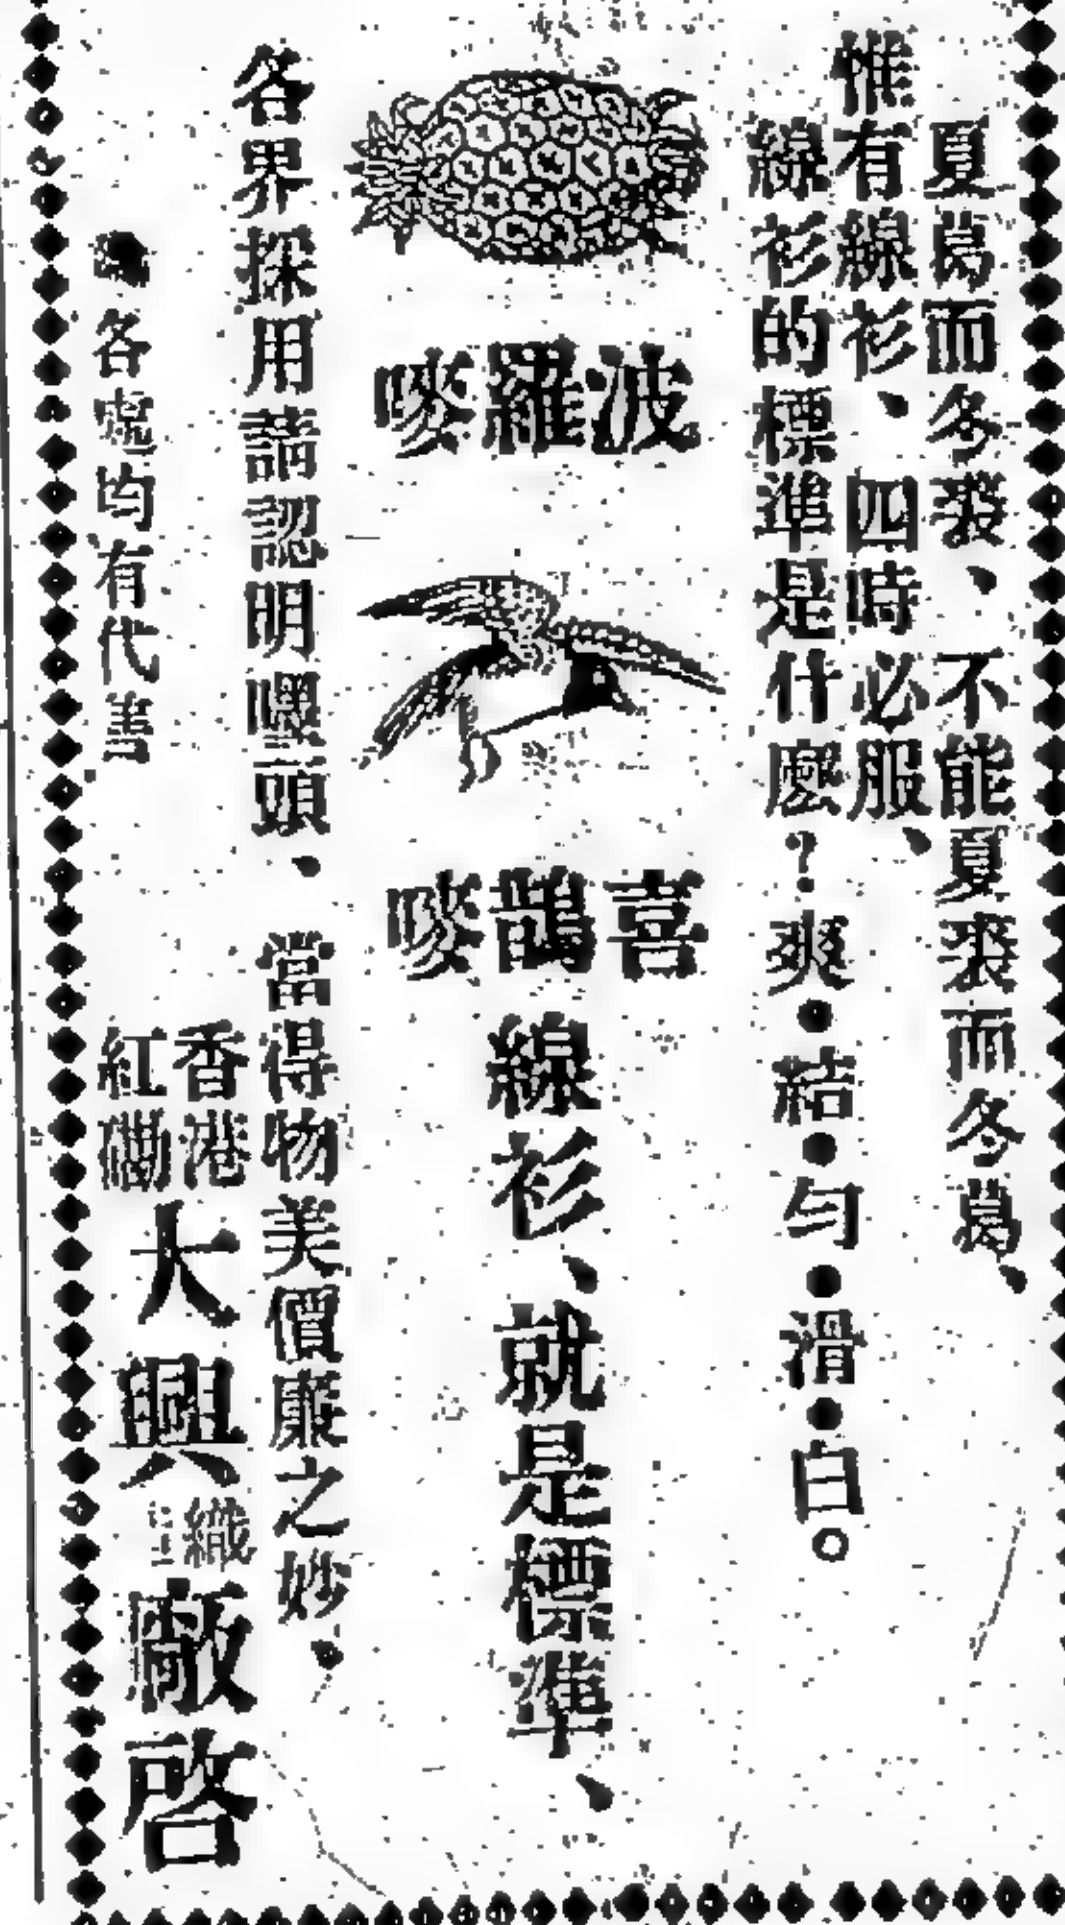 夏葛而冬裘、不能夏裘而冬葛、
惟有線衫、四時必服、
線衫的標準是什麼?爽●結●勻●滑●白。
波羅嘜
喜鵲嘜
線衫、就是標準、
各界採用請認明嘜頭、當得物美價廉之妙、
各處均有代售
香港
紅磡
大興
織
廠啓